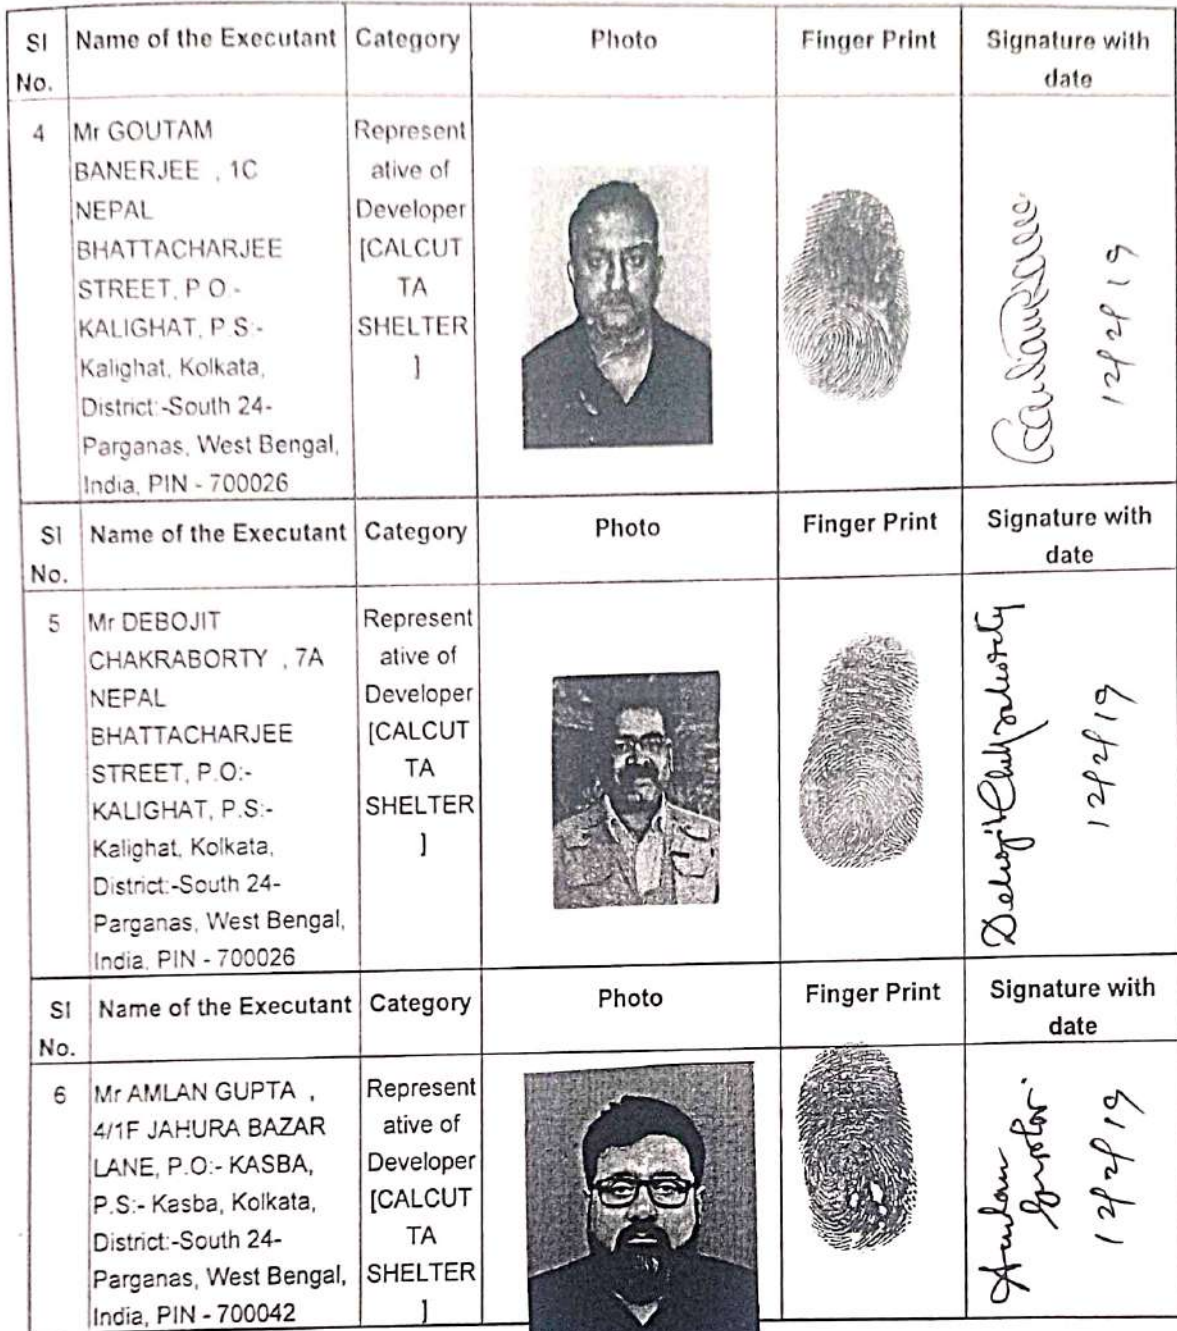 Sl No. Name of the Executant Category Photo Finger Print Signature with date
4 Mr GOUTAM BANERJEE , 1C NEPAL BHATTACHARJEE STREET, P.O:- KALIGHAT, P.S:- Kalighat, Kolkata, District:-South 24-Parganas, West Bengal, India, PIN - 700026
Representative of Developer [CALCUTTA SHELTER]
12/2/19
Sl No. Name of the Executant Category Photo Finger Print Signature with date
5 Mr DEBOJIT CHAKRABORTY , 7A NEPAL BHATTACHARJEE STREET, P.O:- KALIGHAT, P.S:- Kalighat, Kolkata, District:-South 24-Parganas, West Bengal, India, PIN - 700026
Representative of Developer [CALCUTTA SHELTER]
Debojit Chakraborty
12/2/19
Sl No. Name of the Executant Category Photo Finger Print Signature with date
6 Mr AMLAN GUPTA , 4/1F JAHURA BAZAR LANE, P.O:- KASBA, P.S:- Kasba, Kolkata, District:-South 24-Parganas, West Bengal, India, PIN - 700042
Representative of Developer [CALCUTTA SHELTER]
Amlan Gupta
12/2/19